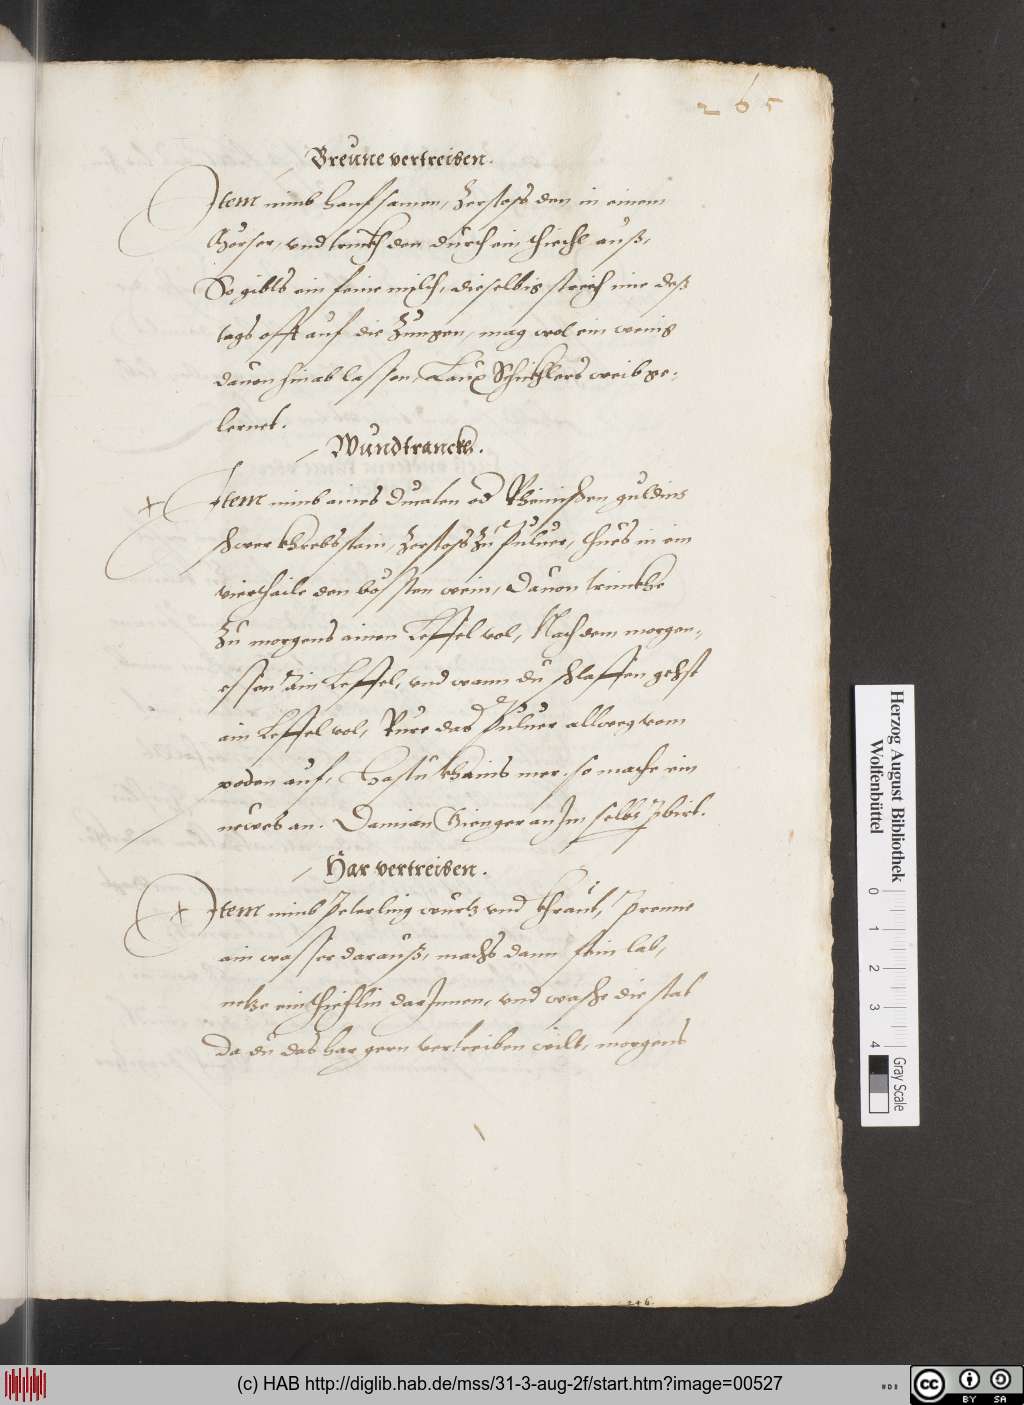 265
Breune vertreiben.
Item nimb hanfsamen, zerstoss den in einem
Morser, vnd truckh den durch ein thiechl auß,
So gibts ein feine milch, dieselbig streich ime deß
tags offt auf die Zungen, mag wol ein wenig
dauon hinab lassen, Schickhlers weib ge-
lernet.
Wundtranckh.
Item nimb aines Ducaten od Rheinischen guldins
schwer khrebsstain, zerstoss zu Puluer, thues in ein
vierthaile den bössten wein, Dauon trinckhe
zu morgens ainen Leffel vol, Nach dem morgen-
essen ain Leffel, vnd wann du schlaffen gehst
ain Leffel vol, Rure das Puluer allweg vom
poden auf, Hastu khains mer, so mache ein
newes an. Damian Gienger an Im selbs
Har vertreiben.
Item nimb Peterling wurtz vnd khraut, Prenne
ain wasser darauß, machs dann fein lab,
netze ein thiechlin darJnnen, vnd wasche die stat
Da du das har gern vertreiben wilt, morgens
246.
Herzog August Bibliothek
Wolfenbüttel
0 1 2 3 4
Gray Scale
(c) HAB http://diglib.hab.de/mss/31-3-aug-2f/start.htm?image=00527
cc BY SA